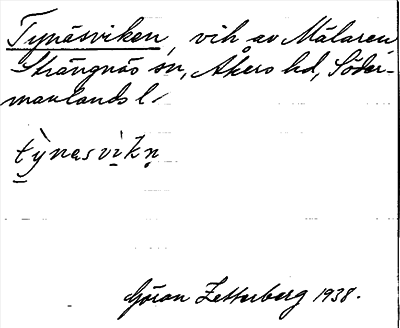 Tynäsviken, vik av Mälaren
Strängnäs sn, Åkers hd, Söder-
manlands l
tỳnəsvìkn̥
Göran Zetterberg 1938.